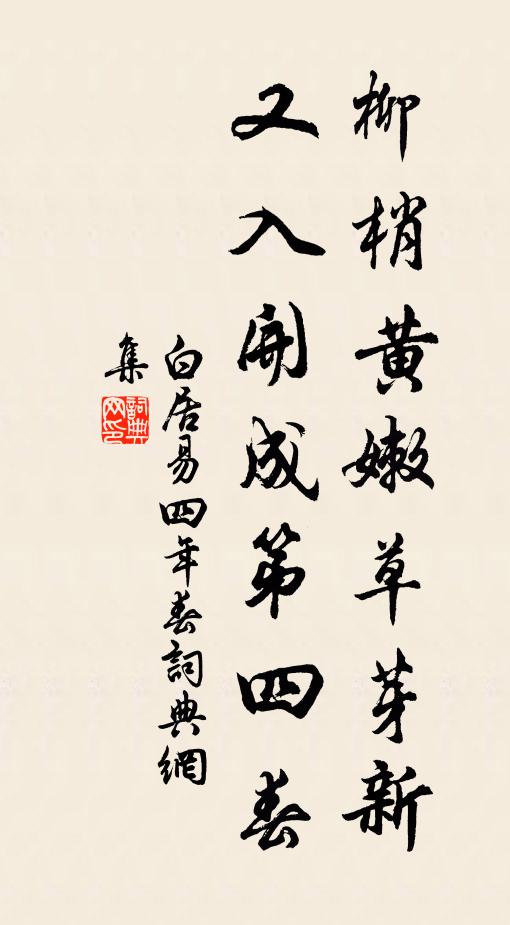 柳梢黄嫩草芽新
又入開成第四春
白居易四年春詞典網
集
詞典網印